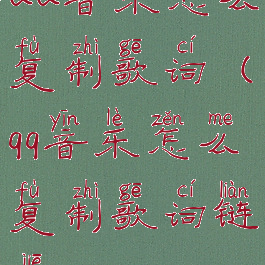 qq音乐怎么
fù zhì gē cí
复制歌词(
yīn lè zěn me
qq音乐怎么
fù zhì gē cí liàn
复制歌词链
jiē